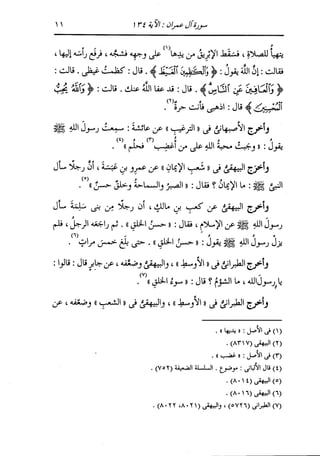 سورة آل عمران : الآية ١٣٤ ١١
يتهيأ للصلاة ، فسقط الإبريق من يدها(١) على وجهه فشجه ، فرفع رأسه إليها ،
فقالت : إن الله يقول : ﴿ والكاظمين الغيظ ﴾ . قال : كظمت غيظى . قالت :
﴿ والعافين عن الناس ﴾ . قال : قد عفا الله عنك . قالت : ﴿ والله يحب
المحسنين ﴾ قال : اذهبى فأنت حرة(٢) .
وأخرج الأصبهانى فى « الترغيب » عن عائشة : سمعت رسول الله ﷺ
يقول : « وجبت محبة الله على من أغضب(٣) فحلم »(٤) .
وأخرج البيهقى فى « شعب الإيمان » عن عمرو بن عبسة ، أن رجلا سأل
النبى ﷺ : ما الإيمان ؟ فقال : « الصبر والسماحة وخلق حسن »(٥) .
وأخرج البيهقى عن كعب بن مالك ، أن رجلا من بنى سلمة سأل
رسول الله ﷺ عن الإسلام ، فقال : « حسن الخلق » . ثم راجعه الرجل ، فلم
يزل رسول الله ﷺ يقول : « حسن الخلق » . حتى بلغ خمس مرات(٦) .
وأخرج الطبرانى فى « الأوسط » ، والبيهقى وضعفه ، عن جابر قال : قالوا :
يا رسول الله ، ما الشؤم ؟ قال : « سوء الخلق »(٧) .
وأخرج الطبرانى فى « الأوسط » ، والبيهقى فى « الشعب » وضعفه ، عن
(١) فى الأصل : « يديها » .
(٢) البيهقى (٨٣١٧) .
(٣) فى الأصل : « غضب » .
(٤) قال الألبانى : موضوع . السلسلة الضعيفة (٧٥٢) .
(٥) البيهقى (٨٠١٤) .
(٦) البيهقى (٨٠١٦) .
(٧) الطبرانى (٥٧٢٦) ، والبيهقى (٨٠٢١، ٨٠٢٢) .